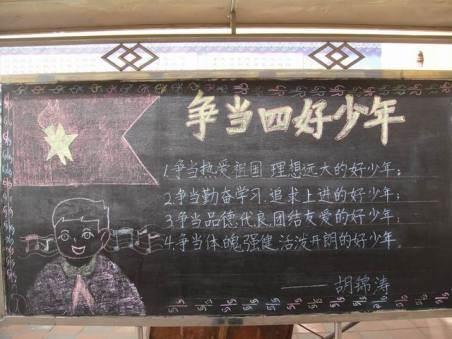 争当四好少年
1.争当热爱祖国,理想远大的好少年;
2.争当勤奋学习,追求上进的好少年;
3.争当品德优良,团结友爱的好少年;
4.争当体魄强健,活泼开朗的好少年。
——胡锦涛